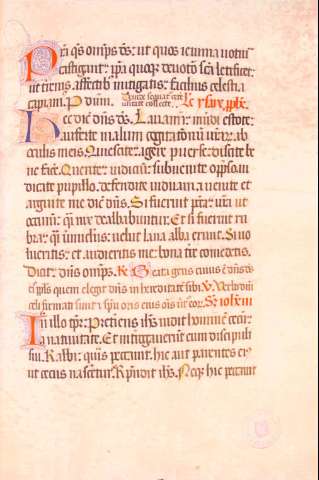 Pra q̄s om̄ps d̄s: ut quos ieiunia uotiua
castigant: ip̄a quoq; deuotio sc̄a letificet:
ut terrenis affectib; mitigatis: facilius celestia
capiam⁹. P dūm.
Lc̄ ysaye ꝓph̄e.
Hec dicit dn̄s d̄s. Lauamini mundi estote:
Auferte malum cogitationū ur̄ar: ab
oculis meis. Quiescite agere peruerse: discite be
ne facere. Querite iudiciū: subuenite oppresso:
iudicate pupillo: defendite uiduam. et uenite et
arguite me dicit dn̄s. Si fuerint pcc̄a ur̄a ut
coccinū: q̄i nix dealbabuntur. Et si fuerint ru
bra: q̄i uermiculus: uelut lana alba erunt. Si uo
lueritis: et audieritis me: bona terre comedetis.
Dicit dn̄s om̄ps. R̄ Beata gens cuius ē dn̄s d̄s
eius ppl̄s quem elegit dn̄s in hereditatē sibi. V̄ Verbo dn̄i
celi firmati sunt: & spū oris eius om̄s uirt⁹ eor̄. Sc̄ ioh̄em
In illo tp̄r: Preteriens ih̄s uidit hominē cecū:
a natiuitate. Et interrogauerunt eum discipuli
sui. Rabbi: quis peccauit: hic aut parentes ei⁹
ut cecus nasceretur. Rn̄dit ih̄s. Neq; hic peccauit